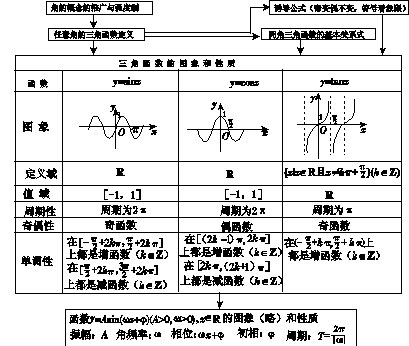 角的概念的推广与弧度制
诱导公式(奇变偶不变，符号看象限)
任意角的三角函数定义
同角三角函数的基本关系式
三角函数的图象和性质
函数 y=sinx y=cosx y=tanx
图象
y 1 O π x
y 1 O π/2 x
y 1 O π/2 x
定义域 R R {x|x∈R且x≠kπ+π/2}(k∈Z)
值域 [-1, 1] [-1, 1] R
周期性 周期为2π 周期为2π 周期为π
奇偶性 奇函数 偶函数 奇函数
单调性
在[-π/2+2kπ, π/2+2kπ]
上都是增函数(k∈Z)
在[π/2+2kπ, 3π/2+2kπ]
上都是减函数(k∈Z)
在[(2k-1)π, 2kπ]
上都是增函数(k∈Z)
在[2kπ, (2k+1)π]
上都是减函数(k∈Z)
在(-π/2+kπ, π/2+kπ)上
都是增函数(k∈Z)
函数y=Asin(ωx+φ)(A>0, ω>0), x∈R的图象(略)和性质
振幅: A 角频率: ω 相位: ωx+φ 初相: φ 周期: T=2π/|ω|